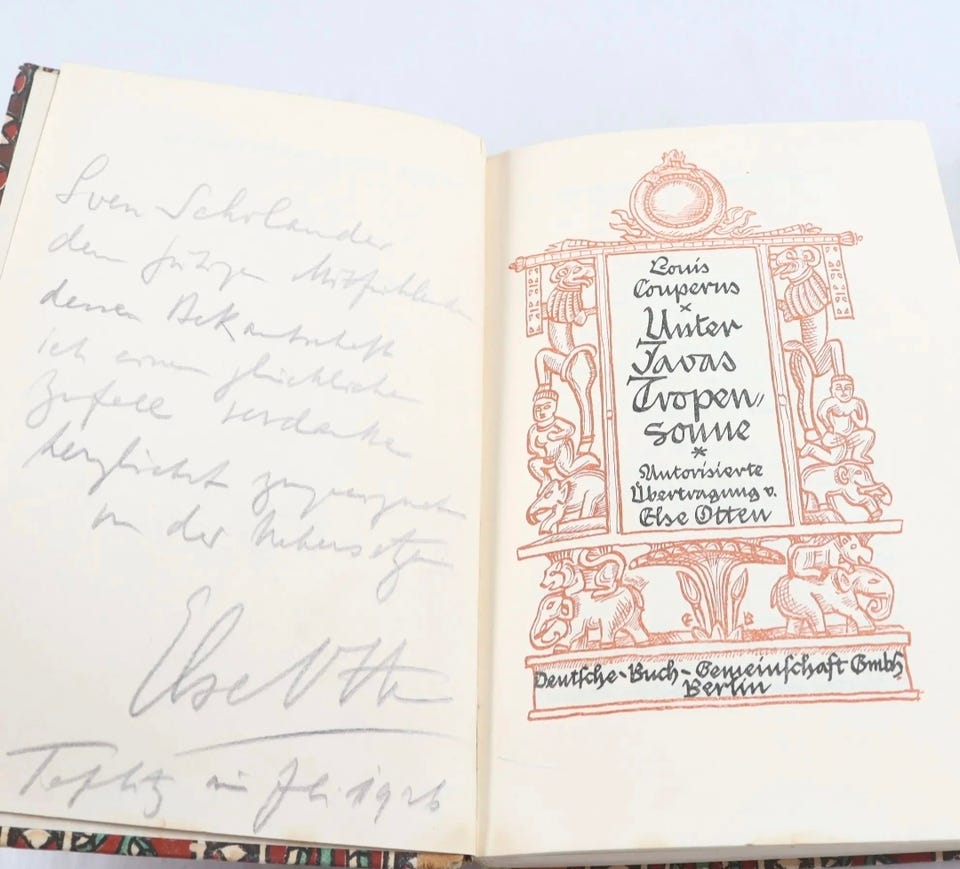 Sven Scholander
dem gütigen Mitfühlenden
dessen Bekantschaft
ich einem glücklichen
Zufall verdanke
herzlichst zugeeignet
von der Uebersetzerin
Else Otten
Teplitz im Juli 1926
Louis
Couperus
*
Unter
Javas
Tropen-
sonne
*
Autorisierte
Übertragung v.
Else Otten
Deutsche-Buch-Gemeinschaft GmbH
Berlin